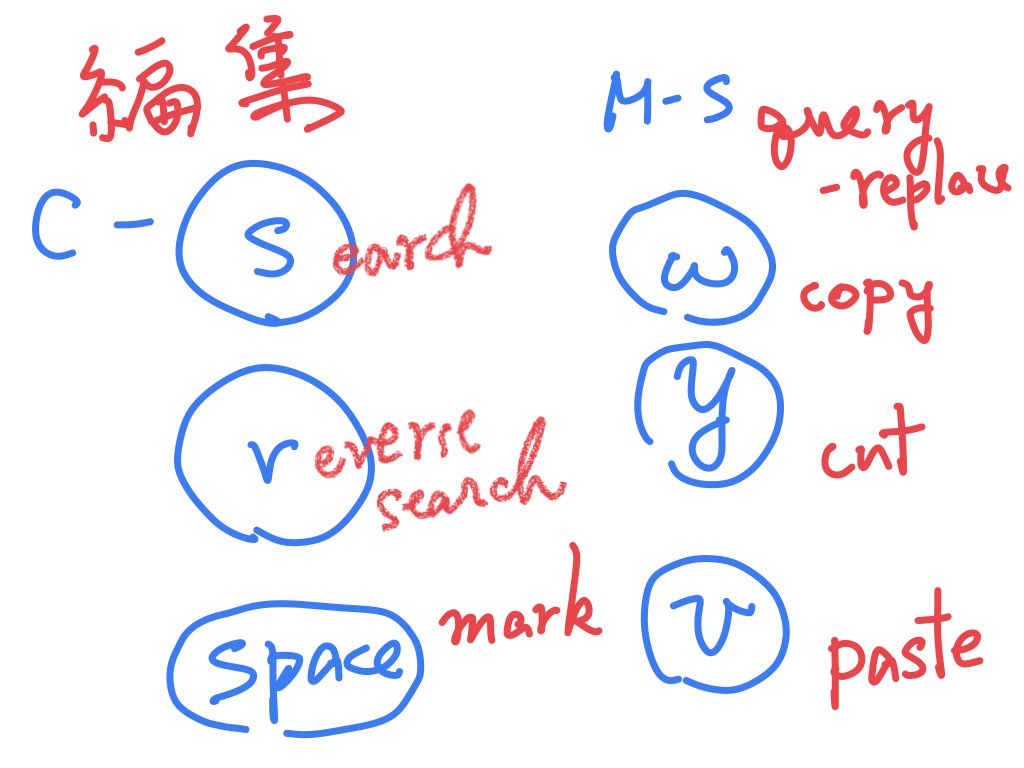 編集
C - search
reverse
search
space mark
M-S query
-replace
w copy
y cut
v paste